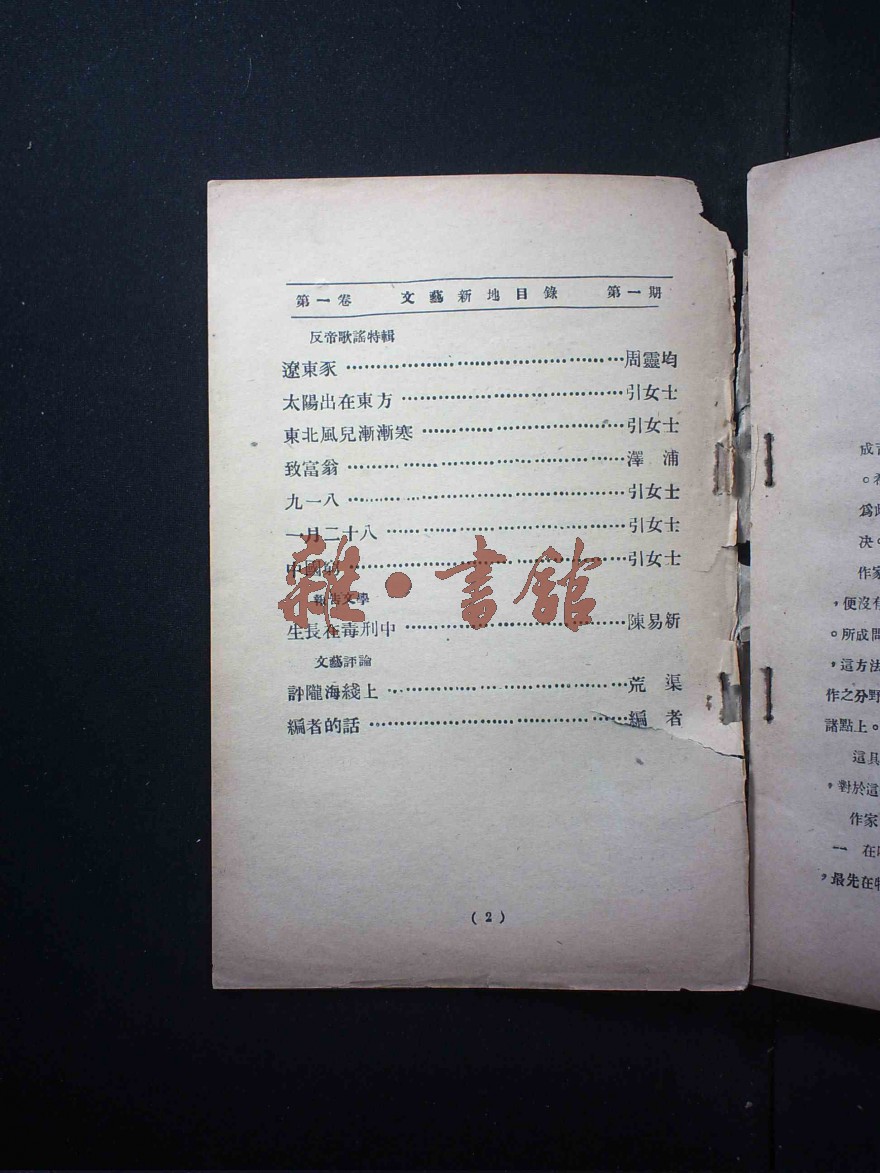 第一卷 文藝新地目錄 第一期
反帝歌謠特輯
遼東豕……周靈均
太陽出在東方……引女士
東北風兒漸漸寒……引女士
致富翁……澤浦
九一八……引女士
一月二十八……引女士
中國……引女士
報告文學
生長在毒刑中……陳易新
文藝評論
評隴海綫上……荒渠
編者的話……編者
(2)
雜·書館
。
爲
決。
作家
，便沒有
。所成問
，這方法
作之分野
諸點上。
這具
，對於這
作家
一 在
，最先在